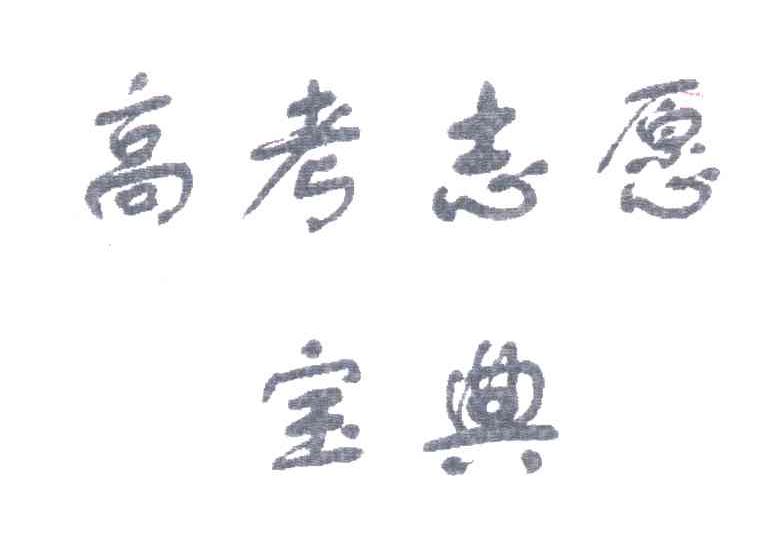 高考志愿
宝典